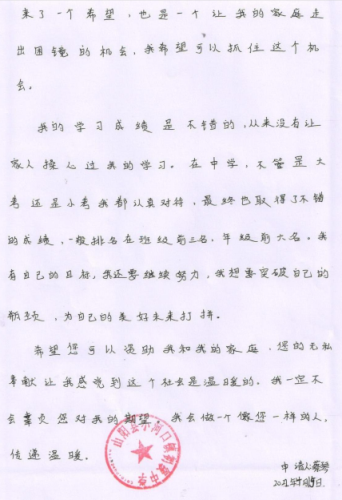 来了一个希望，也是一个让我的家庭走
出困镜的机会，我希望可以抓住这个机
会。
我的学习成绩是不错的，从来没有让
家人操心过我的学习。在中学，不管是大
考还是小考我都认真对待，最终也取得了不错
的成绩，一般排名在班级前三名，年级前六名。我
有自己的目标，我还要继续努力，我想要突破自己的
瓶颈，为自己的美好未来打拼。
希望您可以资助我和我的家庭，您的无私
奉献让我感觉到这个社会是温暖的。我一定不
会辜负您对我的期望。我会做一个像您一样的人，
传递温暖。
申请人